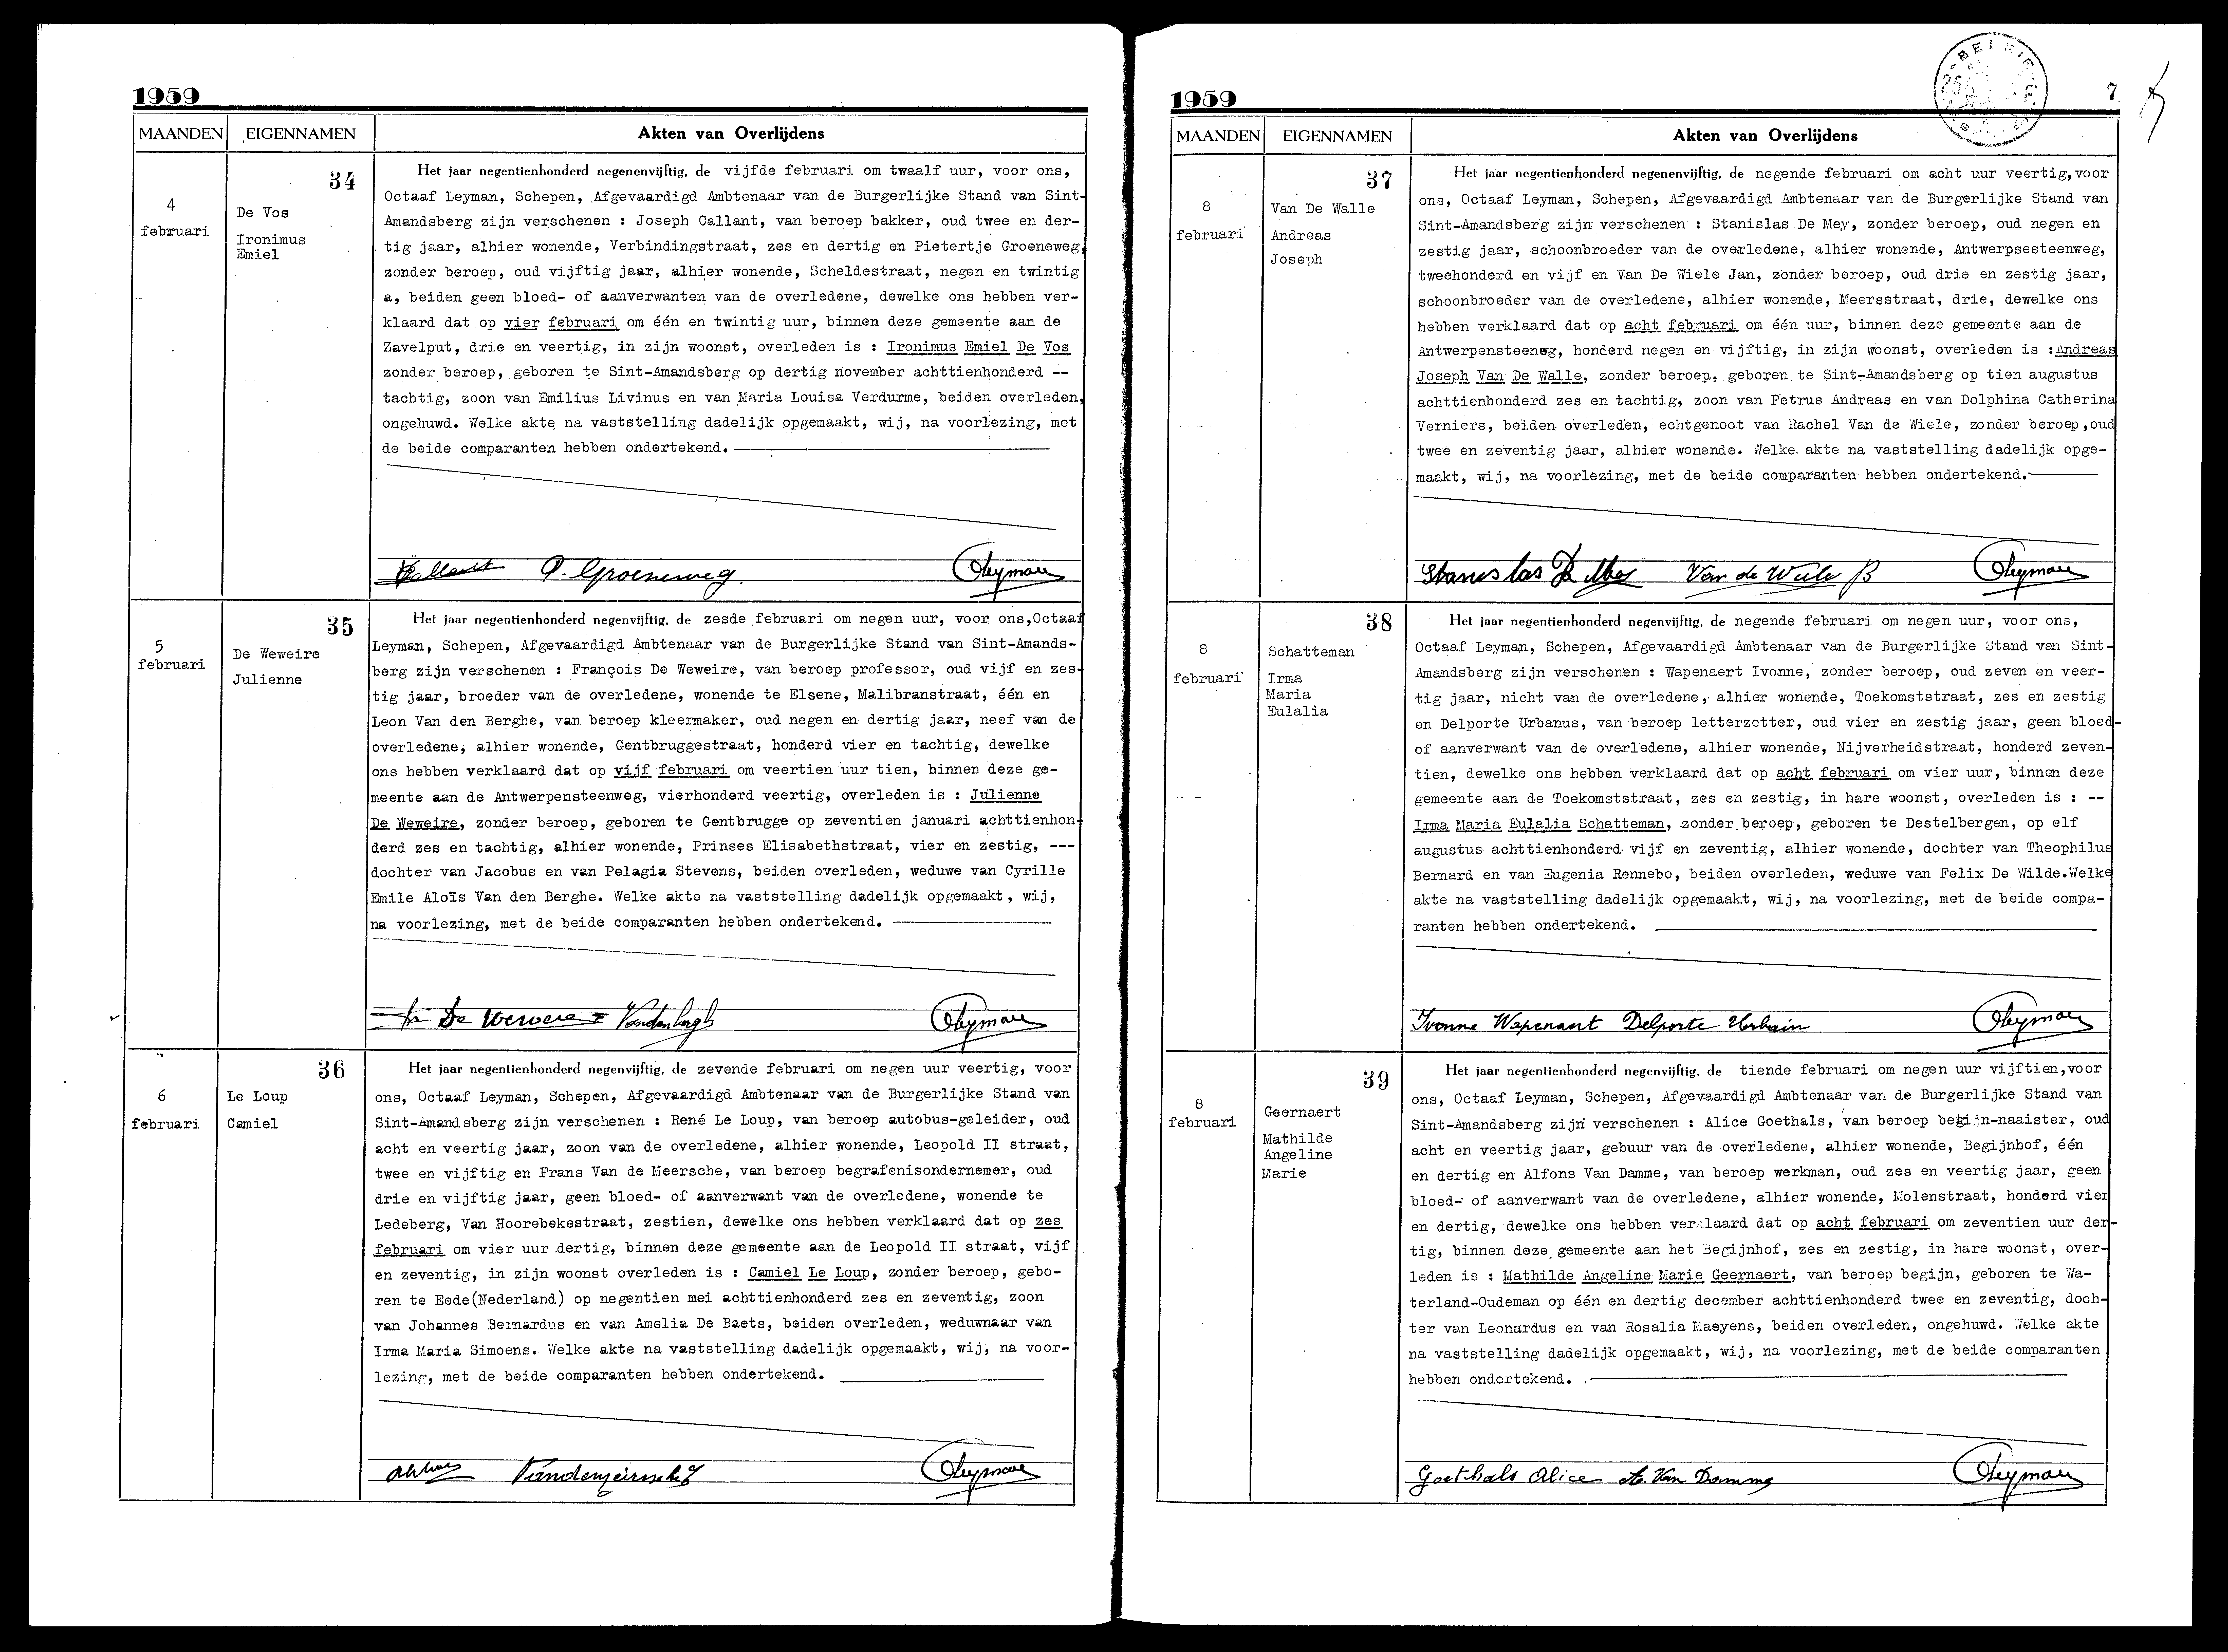 1959
MAANDEN EIGENNAMEN Akten van Overlijdens
34
4
februari
De Vos
Ironimus
Emiel
Het jaar negentienhonderd negenenvijftig, de vijfde februari om twaalf uur, voor ons,
Octaaf Leyman, Schepen, Afgevaardigd Ambtenaar van de Burgerlijke Stand van Sint-
Amandsberg zijn verschenen : Joseph Callant, van beroep bakker, oud twee en der-
tig jaar, alhier wonende, Verbindingstraat, zes en dertig en Pietertje Groeneweg,
zonder beroep, oud vijftig jaar, alhier wonende, Scheldestraat, negen en twintig
a, beiden geen bloed- of aanverwanten van de overledene, dewelke ons hebben ver-
klaard dat op vier februari om één en twintig uur, binnen deze gemeente aan de
Zavelput, drie en veertig, in zijn woonst, overleden is : Ironimus Emiel De Vos
zonder beroep, geboren te Sint-Amandsberg op dertig november achttienhonderd --
tachtig, zoon van Emilius Livinus en van Maria Louisa Verdurme, beiden overleden,
ongehuwd. Welke akte na vaststelling dadelijk opgemaakt, wij, na voorlezing, met
de beide comparanten hebben ondertekend.
Callant P. Groeneweg OLeyman
35
5
februari
De Weweire
Julienne
Het jaar negentienhonderd negenvijftig, de zesde februari om negen uur, voor ons,Octaaf
Leyman, Schepen, Afgevaardigd Ambtenaar van de Burgerlijke Stand van Sint-Amands-
berg zijn verschenen : François De Weweire, van beroep professor, oud vijf en zes-
tig jaar, broeder van de overledene, wonende te Elsene, Malibranstraat, één en
Leon Van den Berghe, van beroep kleermaker, oud negen en dertig jaar, neef van de
overledene, alhier wonende, Gentbruggestraat, honderd vier en tachtig, dewelke
ons hebben verklaard dat op vijf februari om veertien uur tien, binnen deze ge-
meente aan de Antwerpensteenweg, vierhonderd veertig, overleden is : Julienne
De Weweire, zonder beroep, geboren te Gentbrugge op zeventien januari achttienhon-
derd zes en tachtig, alhier wonende, Prinses Elisabethstraat, vier en zestig, ---
dochter van Jacobus en van Pelagia Stevens, beiden overleden, weduwe van Cyrille
Emile Aloïs Van den Berghe. Welke akte na vaststelling dadelijk opgemaakt, wij,
na voorlezing, met de beide comparanten hebben ondertekend.
OLeyman
36
6
februari
Le Loup
Camiel
Het jaar negentienhonderd negenvijftig, de zevende februari om negen uur veertig, voor
ons, Octaaf Leyman, Schepen, Afgevaardigd Ambtenaar van de Burgerlijke Stand van
Sint-Amandsberg zijn verschenen : René Le Loup, van beroep autobus-geleider, oud
acht en veertig jaar, zoon van de overledene, alhier wonende, Leopold II straat,
twee en vijftig en Frans Van de Meersche, van beroep begrafenisondernemer, oud
drie en vijftig jaar, geen bloed- of aanverwant van de overledene, wonende te
Ledeberg, Van Hoorebekestraat, zestien, dewelke ons hebben verklaard dat op zes
februari om vier uur dertig, binnen deze gemeente aan de Leopold II straat, vijf
en zeventig, in zijn woonst overleden is : Camiel Le Loup, zonder beroep, gebo-
ren te Eede(Nederland) op negentien mei achttienhonderd zes en zeventig, zoon
van Johannes Bernardus en van Amelia De Baets, beiden overleden, weduwnaar van
Irma Maria Simoens. Welke akte na vaststelling dadelijk opgemaakt, wij, na voor-
lezing, met de beide comparanten hebben ondertekend.
OLeyman
1959
7
MAANDEN EIGENNAMEN Akten van Overlijdens
37
8
februari
Van De Walle
Andreas
Joseph
Het jaar negentienhonderd negenenvijftig, de negende februari om acht uur veertig,voor
ons, Octaaf Leyman, Schepen, Afgevaardigd Ambtenaar van de Burgerlijke Stand van
Sint-Amandsberg zijn verschenen : Stanislas De Mey, zonder beroep, oud negen en
zestig jaar, schoonbroeder van de overledene, alhier wonende, Antwerpsesteenweg,
tweehonderd en vijf en Van De Wiele Jan, zonder beroep, oud drie en zestig jaar,
schoonbroeder van de overledene, alhier wonende, Meersstraat, drie, dewelke ons
hebben verklaard dat op acht februari om één uur, binnen deze gemeente aan de
Antwerpensteenweg, honderd negen en vijftig, in zijn woonst, overleden is :Andreas
Joseph Van De Walle, zonder beroep, geboren te Sint-Amandsberg op tien augustus
achttienhonderd zes en tachtig, zoon van Petrus Andreas en van Dolphina Catherina
Verniers, beiden overleden, echtgenoot van Rachel Van de Wiele, zonder beroep,oud
twee en zeventig jaar, alhier wonende. Welke akte na vaststelling dadelijk opge-
maakt, wij, na voorlezing, met de beide comparanten hebben ondertekend.
Stanislas De Mey Van de Wiele OLeyman
38
8
februari
Schatteman
Irma
Maria
Eulalia
Het jaar negentienhonderd negenvijftig, de negende februari om negen uur, voor ons,
Octaaf Leyman, Schepen, Afgevaardigd Ambtenaar van de Burgerlijke Stand van Sint-
Amandsberg zijn verschenen : Wapenaert Ivonne, zonder beroep, oud zeven en veer-
tig jaar, nicht van de overledene, alhier wonende, Toekomststraat, zes en zestig
en Delporte Urbanus, van beroep letterzetter, oud vier en zestig jaar, geen bloed-
of aanverwant van de overledene, alhier wonende, Nijverheidstraat, honderd zeven-
tien, dewelke ons hebben verklaard dat op acht februari om vier uur, binnen deze
gemeente aan de Toekomststraat, zes en zestig, in hare woonst, overleden is : --
Irma Maria Eulalia Schatteman, zonder beroep, geboren te Destelbergen, op elf
augustus achttienhonderd vijf en zeventig, alhier wonende, dochter van Theophilus
Bernard en van Eugenia Rennebo, beiden overleden, weduwe van Felix De Wilde.Welke
akte na vaststelling dadelijk opgemaakt, wij, na voorlezing, met de beide compa-
ranten hebben ondertekend.
Ivonne Wapenaert Delporte Urbain OLeyman
39
8
februari
Geernaert
Mathilde
Angeline
Marie
Het jaar negentienhonderd negenvijftig, de tiende februari om negen uur vijftien,voor
ons, Octaaf Leyman, Schepen, Afgevaardigd Ambtenaar van de Burgerlijke Stand van
Sint-Amandsberg zijn verschenen : Alice Goethals, van beroep begijn-naaister, oud
acht en veertig jaar, gebuur van de overledene, alhier wonende, Begijnhof, één
en dertig en Alfons Van Damme, van beroep werkman, oud zes en veertig jaar, geen
bloed- of aanverwant van de overledene, alhier wonende, Molenstraat, honderd vier
en dertig, dewelke ons hebben verklaard dat op acht februari om zeventien uur der-
tig, binnen deze gemeente aan het Begijnhof, zes en zestig, in hare woonst, over-
leden is : Mathilde Angeline Marie Geernaert, van beroep begijn, geboren te Wa-
terland-Oudeman op één en dertig december achttienhonderd twee en zeventig, doch-
ter van Leonardus en van Rosalia Maeyens, beiden overleden, ongehuwd. Welke akte
na vaststelling dadelijk opgemaakt, wij, na voorlezing, met de beide comparanten
hebben ondertekend.
Goethals Alice A. Van Damme OLeyman